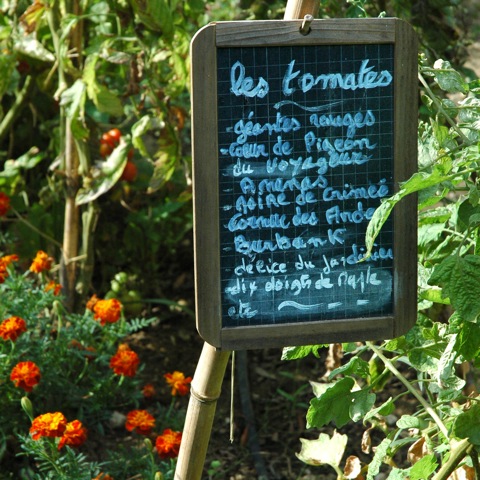 les tomates
géantes rouges
-coeur de Pigeon
du voyageux
Ananas
noire de Crimée
cornue des Andes
Burbank
délice du Jardinier
dix doigts de Naple
etc